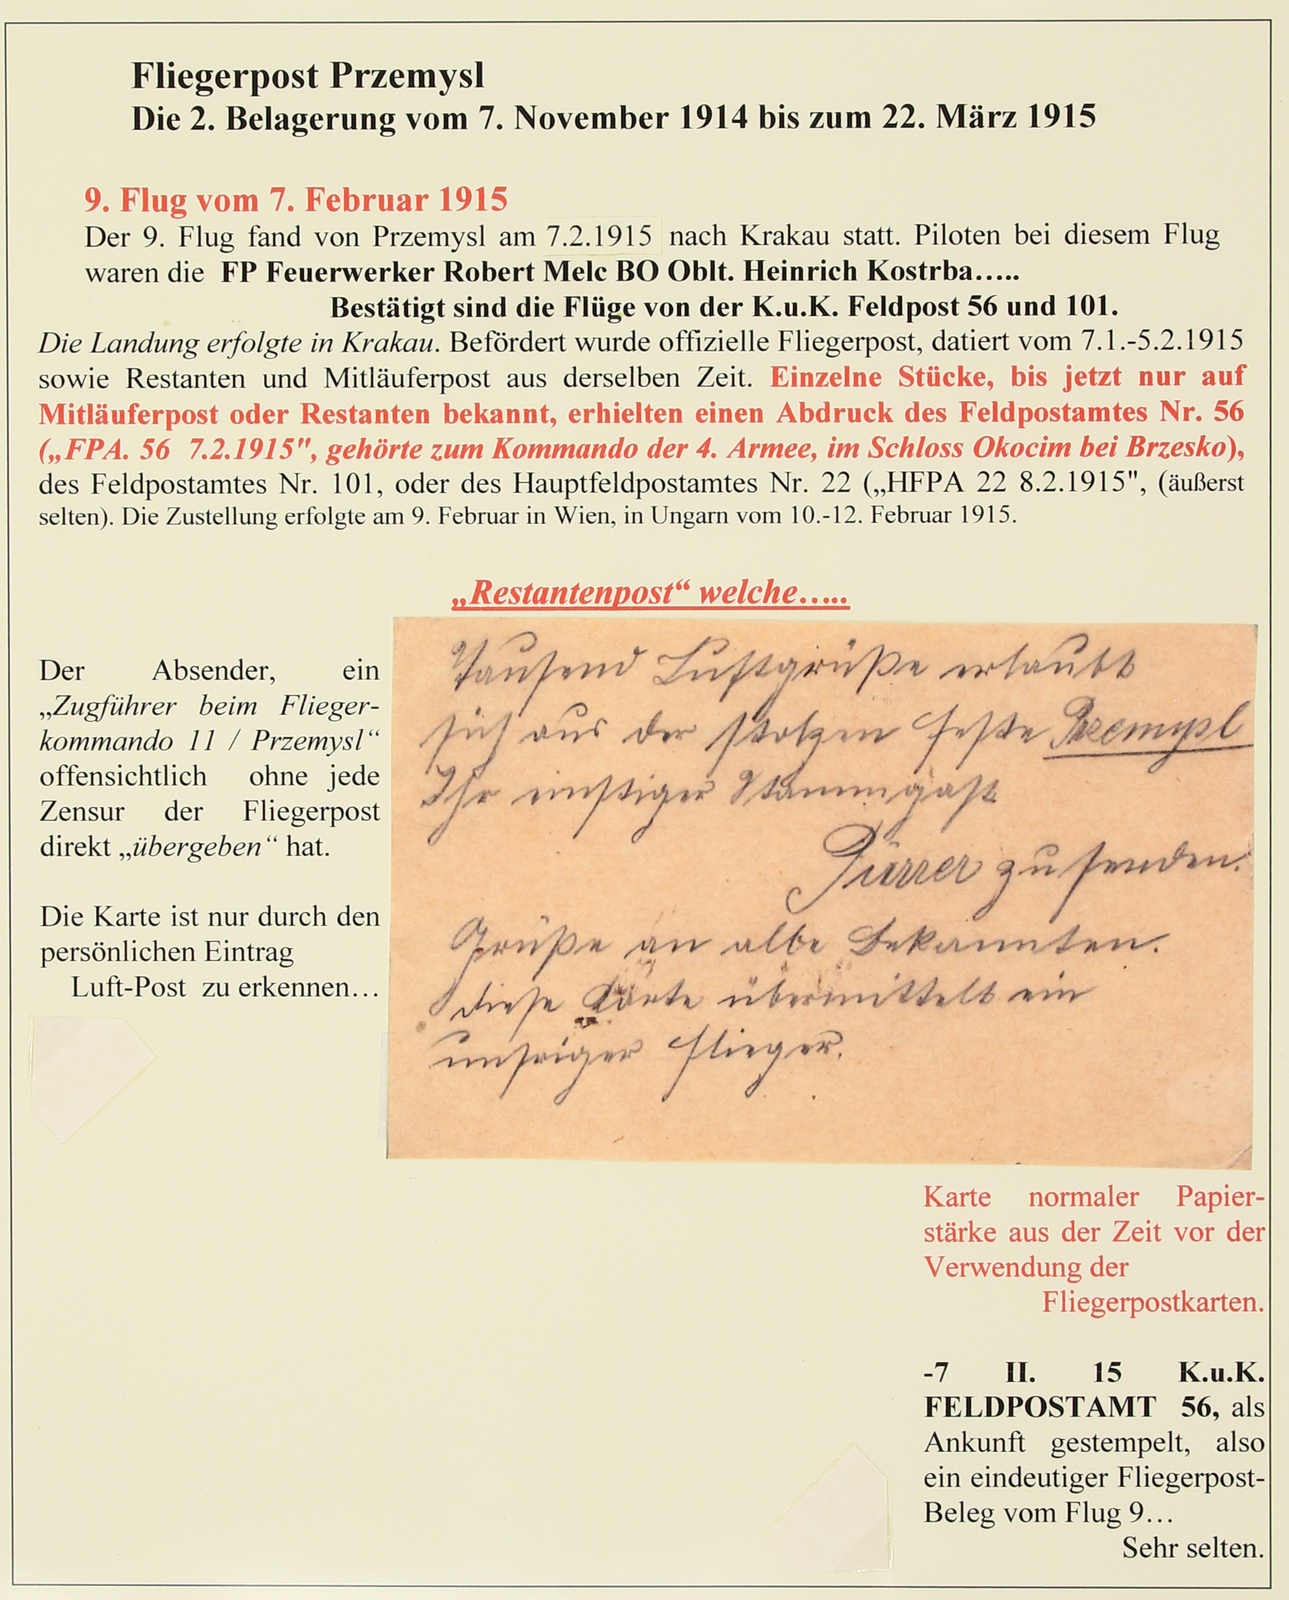 Fliegerpost Przemysl
Die 2. Belagerung vom 7. November 1914 bis zum 22. März 1915
9. Flug vom 7. Februar 1915
Der 9. Flug fand von Przemysl am 7.2.1915 nach Krakau statt. Piloten bei diesem Flug
waren die FP Feuerwerker Robert Melc BO Oblt. Heinrich Kostrba…..
Bestätigt sind die Flüge von der K.u.K. Feldpost 56 und 101.
Die Landung erfolgte in Krakau. Befördert wurde offizielle Fliegerpost, datiert vom 7.1.-5.2.1915
sowie Restanten und Mitläuferpost aus derselben Zeit. Einzelne Stücke, bis jetzt nur auf
Mitläuferpost oder Restanten bekannt, erhielten einen Abdruck des Feldpostamtes Nr. 56
(„FPA. 56 7.2.1915", gehörte zum Kommando der 4. Armee, im Schloss Okocim bei Brzesko),
des Feldpostamtes Nr. 101, oder des Hauptfeldpostamtes Nr. 22 („HFPA 22 8.2.1915", (äußerst
selten). Die Zustellung erfolgte am 9. Februar in Wien, in Ungarn vom 10.-12. Februar 1915.
„Restantenpost“ welche…..
Der Absender, ein
„Zugführer beim Flieger-
kommando 11 / Przemysl“
offensichtlich ohne jede
Zensur der Fliegerpost
direkt „übergeben“ hat.
Die Karte ist nur durch den
persönlichen Eintrag
Luft-Post zu erkennen…
Tausend Luftgrüße erlaubt
sich aus der stolzen Feste Przemysl
Ihr einstiger Stammgast
Pürrer zu senden.
Grüße an alle Bekannten.
Diese Karte übermittelt ein
unsriger Flieger.
Karte normaler Papier-
stärke aus der Zeit vor der
Verwendung der
Fliegerpostkarten.
-7 II. 15 K.u.K.
FELDPOSTAMT 56, als
Ankunft gestempelt, also
ein eindeutiger Fliegerpost-
Beleg vom Flug 9…
Sehr selten.